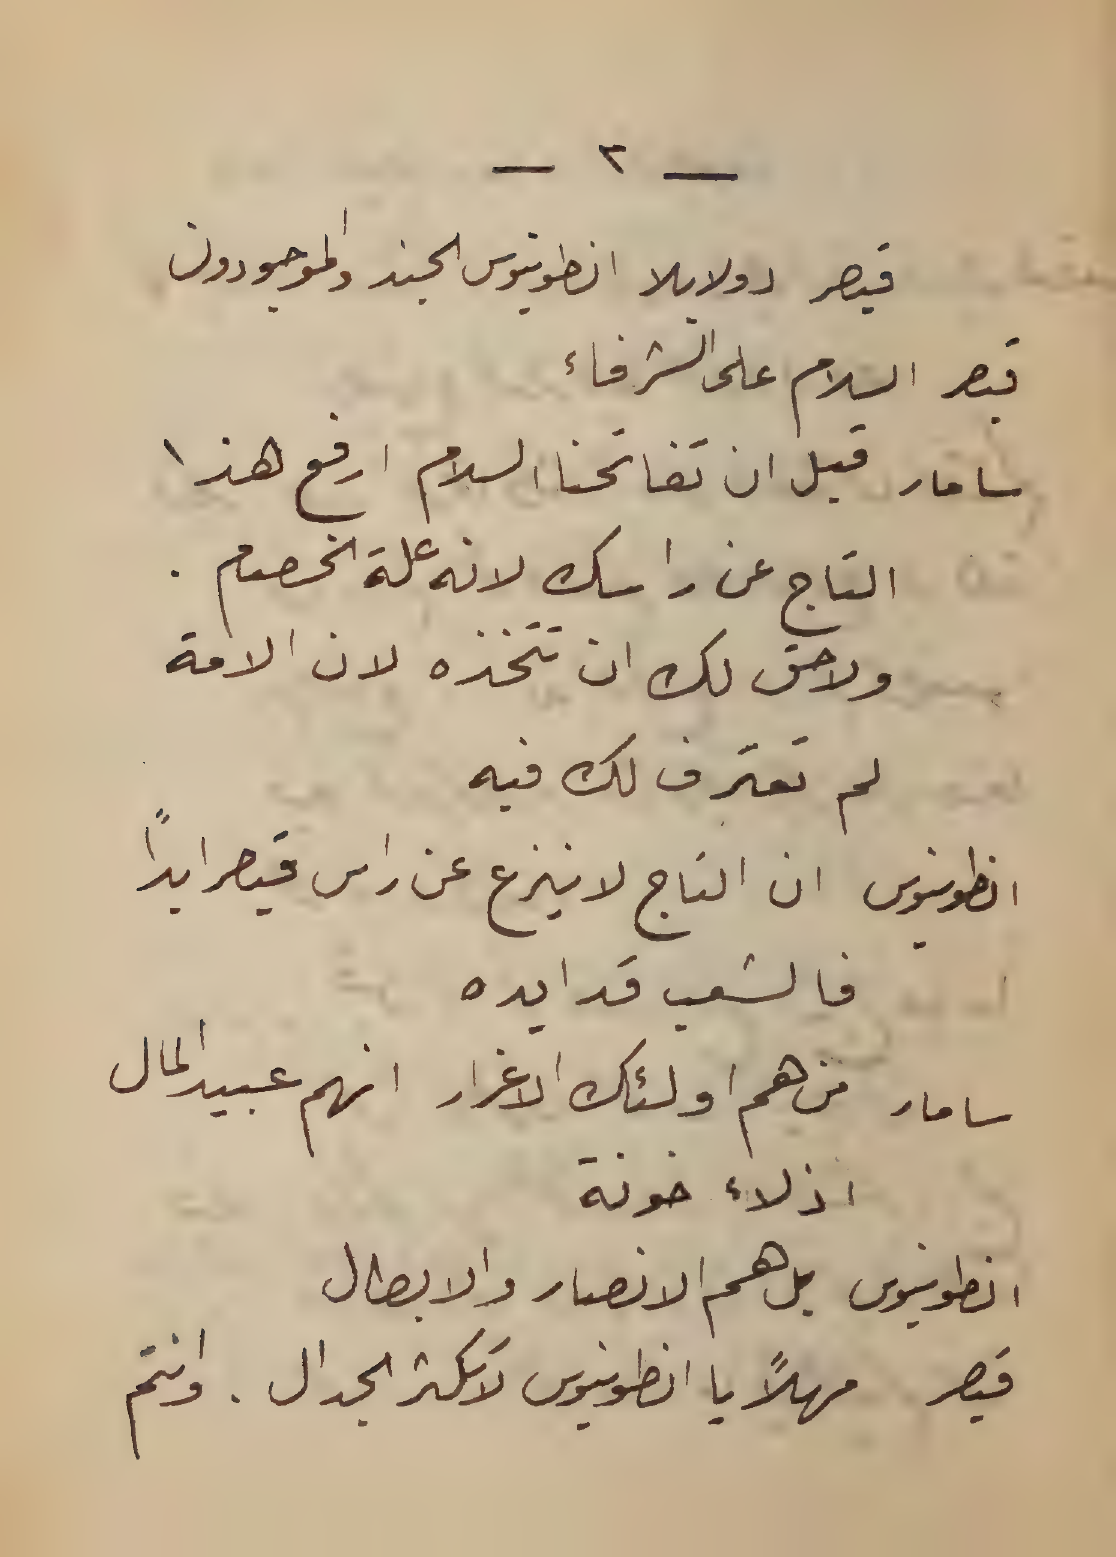 — ٢ —
قيصر دولابلا انطونيوس الجند والموجودون
قيصر السلام على الشرفاء
سامار قبل ان تفاتحنا السلام ارفع هذا
التاج عن راسك لانه علة الخصام .
ولاحق لك ان تتخذه لان الامة
لم تعترف لك فيه
انطونيوس ان التاج لا ينزع عن راس قيصر ابداً
فالشعب قد ايده
سامار من هم اولئك الاغرار انهم عبيد المال
اذلاء خونة
انطونيوس بل هم الانصار والابطال
قيصر مهلاً يا انطونيوس لا تكثر الجدال . وانتم